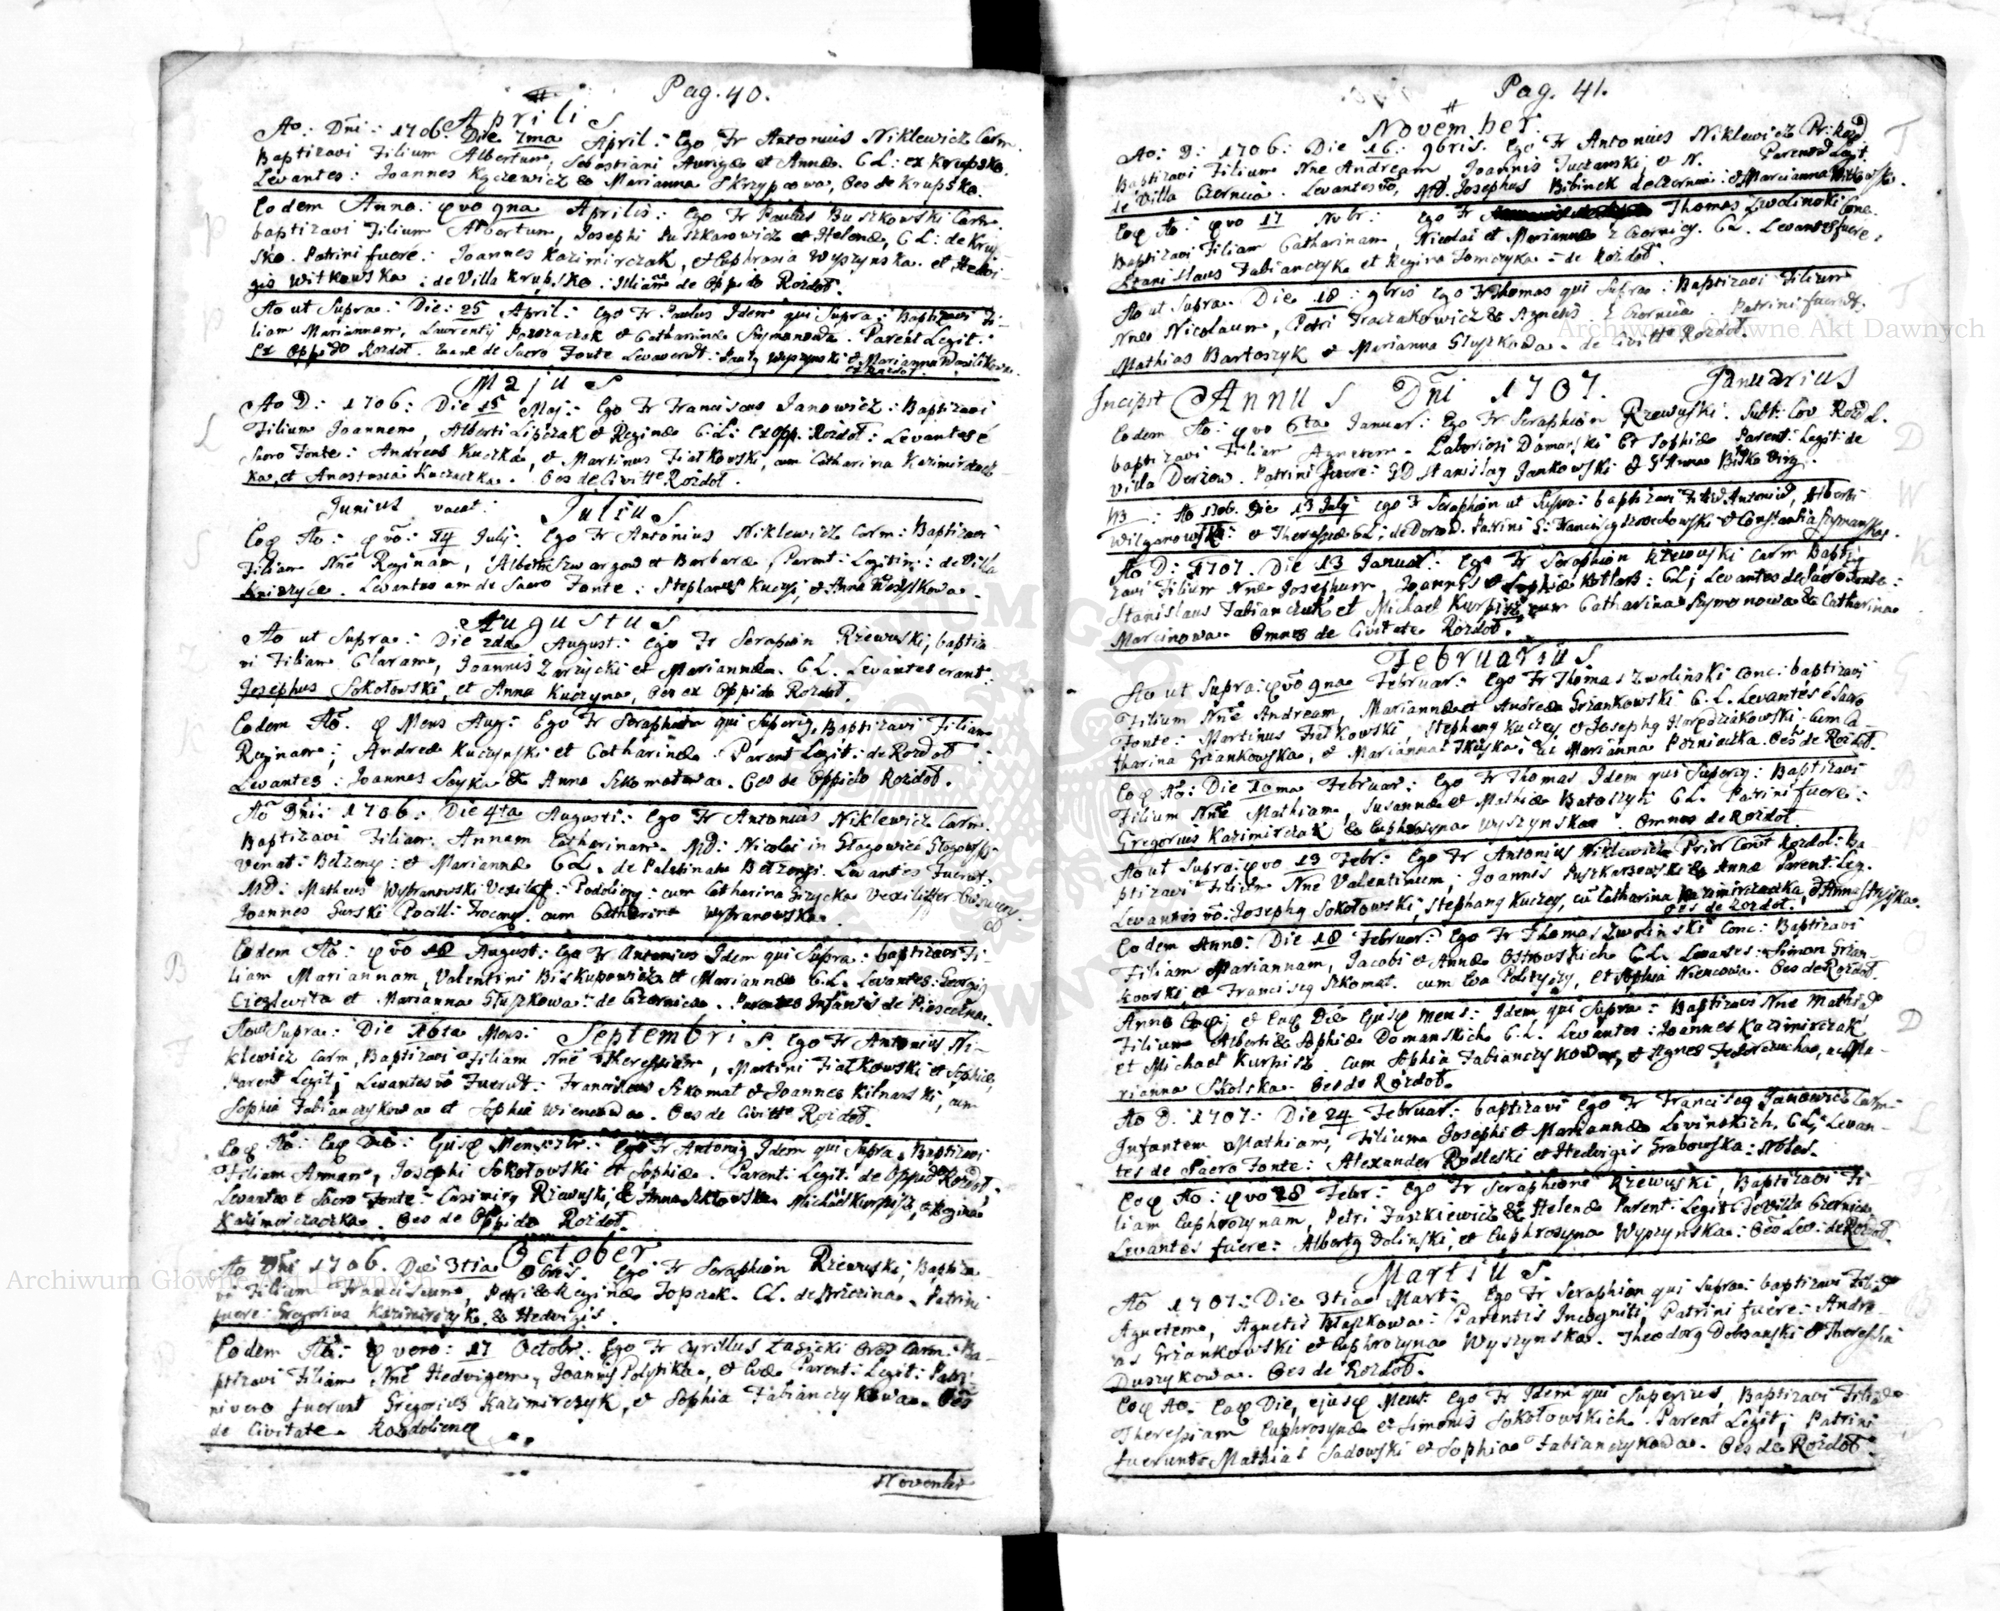 Pag. 40.
Aprilis
Ao: Dni: 1706. Die 7ma April: Ego Fr Antonius Niklewicz Carm.
Baptizavi Filium Albertum, Sebastiani Aurigæ et Annæ. C L: ex Krupsko.
Levantes: Joannes Kęczewicz & Marianna Skrzypcowa, Oes de Krupsko.
Eodem Anno: qvo 9na Aprilis: Ego Fr Paulus Buszkowski Carm
baptizavi Filium Albertum, Josephi Puszkarowicz et Helenæ, C L: de Krup
sko. Patrini fueré: Joannes Kazimirczak, et Euphrosia Wyszynska. et Hedvi-
gis Witkowska: de Villa Krupsko. de Oppido Rozdoł.
Ao ut Supra: Die: 25 April: Ego Fr Paulus Idem qui Supra: Baptizavi Fi-
liam Mariannam, Laurentij et Catharinæ Szymanowa. Parent Legit:
Ex Oppido Rozdoł. de Sacro Fonte Levaverūt: Wyszynski & Marianna Wasilikowa.
ex Rozdoł.
Majus
Ao D: 1706: Die 15 Maj: Ego Fr Franciscus Janowicz: Baptizavi
Filium Joannem, Alberti Lipczak & Reginæ C. L: ex Opp: Rozdoł: Levantes é
Sacro Fonte: Andreas Kuczka, et Martinus Fiałkowski, cum Catharina Kazimirczacz
ka, et Anastasia Kaczaczka. Oes de Civitte Rozdoł.
Junius vacat: Julius
Eoq Ao: qvo: 14 July. Ego Fr Antonius Niklewicz Carm: Baptizavi
Filiam Nnē Reginam, Alberti et Barbaræ Parent: Legitim: de Villa
Levantes eam de Sacro Fonte: Stephanus Kuczij, & Anna
Augustus
Ao ut Supra: Die 2da August: Ego Fr Serapion Rzewuski, baptiza-
vi Filiam Claram, Joannis Zarzycki et Mariannæ. C. L. Levantes erant:
Josephus Sokołowski, et Anna Kuczyna, Oes ex Oppido Rozdoł.
Eodem Ao. q Mens Aug: Ego Fr Seraphion qui Superig, Baptizavi Filiam
Reginam; Andreæ Kuczynski et Catharinæ: Parent Legit: de Rozdoł
Levantes: Joannes & Anna Oes de Oppido Rozdoł.
Ao Dni: 1706: Die 4ta Augusti: Ego Fr Antonius Niklewicz Carm.
Baptizavi Filiam Annam Catharinam. MD: Nicolai in Głogowice Głogowski
Venat: Bełzeng: et Mariannæ C L. de Palatinatu Levantes Fuerūt:
MD: Matheus Wybranowski Podolieng: cum Catharina
Joannes Gurski Pocill: cum Catharina Wybranowska.
Eodem Ao: qvo 18 August: Ego Fr Antonius Idem qui Supra: baptizavi Fi-
liam Mariannam, Valentini Biskupowicz et Mariannæ C. L. Levantes: Georgij
et Marianna Głuszkowa: de Czernica. Parentes Infantis de Piaseczna.
Ao ut Supra: Die 16ta Mens: Septembris. Ego Fr Antonius Ni-
klewicz Carm, Baptizavi Filiam Nnē Theressiam, Martini Fiałkowski et Sophiæ,
Parent Legit; Levantes vō Fuerūt: Franciscus Szkomat & Joannes Kilnarski, cum
Sophia Fabianczykowa et Sophia Wiencowa. Oes de Civitte Rozdoł.
Eoq Ao: Eoq Die: Ejusq Mens: 7br: Ego Fr Antonig Idem qui Supra, Baptizavi
Filiam Annam, Josephi Sokołowski et Sophiæ. Parent: Legit: de Oppido Rozdoł.
Levantes é Sacro Fonte: Casimirg Rzewuski, & Anna Michael Kurpisz, & Regina
Kazimirczaczka. Oes de Oppido Rozdoł.
October
Ao Dni 1706. Die 3tia 8bris. Ego Fr Seraphion Rzewuski, Baptiza-
vi Filium Franciscum, Petri & Reginæ Topczak. C L. de Brzezina. Patrini
fuere: Gregorius Kazimirczyk, & Hedvigis.
Eodem Ao: q vero: 17 Octobr: Ego Fr Cyrillus Łasicki Ord Carm: Ba-
ptizavi Filiam Nnē Hedvigem, Joannis et Evæ Parent: Legit: Patri-
ni vero fuerunt Gregorius Kazimirczyk, et Sophia Fabianczykowa. Oes
de Civitate Rozdolieng
November
Pag. 41.
November.
Ao: D: 1706: Die 16: 9bris. Ego Fr Antonius Niklewicz Pr: Rozd
Baptizavi Filium Nne Andream, Joannis Tuczanski, & N. Parent Legit.
de Villa Czernica. Levantes vō, Josephus Bibinek de Czernica: & Marianna Witkowska.
Eoq Ao: qvo 17 Nvbr: Ego Fr Thomas Zwolinski Conc.
Baptizavi Filiam Catharinam, Nicolai et Mariannæ z Czernicy. C L. Levantes fuere:
Stanislaus Fabianczyk et Regina Tomczyka: de Rozdoł.
Ao ut Supra. Die 18: 9bris Ego Fr Thomas qui Supra: Baptizavi Filium
Nne Nicolaum, Petri Traczakowicz & Agnetis. z Czernica Patrini fuerūt.
Mathias Bartoszyk et Marianna Głuszkowa. de Civitte Rozdoł.
Incipit Annus Dni 1707. Januarius
Eodem Ao: qvo 6ta Januar: Ego Fr Seraphion Rzewuski. Rozd L.
baptizavi Filiam Agnetem. Laboriosi Domanski Et Sophiæ Parent: Legit: de
Villa Derzow. Patrini fuere: GD Stanislag Jankowski & G Anna
NB: Ao 1706. Die 13 July ego Fr Seraphion ut Supra: baptizavi Filiū Antoniū, Alberti
Wilganowski: et Theressiæ C L; de Patrini G: Franciscg & Constantia Szymanska.
Ao D: 1707. Die 13 Januar: Ego Fr Seraphion Rzewuski Carm Bapti-
zavi Filium Nne Josephum Joannis & Sophiæ Kotlarz: C L; Levantes de Sacro Fonte:
Stanislaus Fabianczyk et Michael Kurpisz, cum Catharina Szymonowa & Catharina
Marcinowa. Omnes de Civitate Rozdoł.
Februarius
Ao ut Supra: qvo 9na Februar: Ego Fr Thomas Zwolinski Conc: baptizavi
Filium Nnē Andream, Mariannæ et Andreæ Grzankowski C. L. Levantes é Sacro
Fonte: Martinus Fiałkowski, Stephang Kuczey, et Josephg Cum Ca-
tharina Grzankowska, et Marianna ac Marianna Pozniaczka. Oes de Rozdoł.
Eoq Ao: Die 10ma Februar: Ego Fr Thomas Idem qui Superig: Baptizavi
Filium Nnē Mathiam, Susannæ et Mathiæ Batoszyk C L. Patrini fuere:
Gregorius Kazimirczak & Euphrosyna Wyszynska: Omnes de Rozdoł.
Ao ut Supra: qvo 13 Febr: Ego Fr Antonius Niklewicz Prior Convt Rozdol: Ba-
ptizavi Filium Nne Valentinum, Joannis Puszkarzewski & Annæ Parent: Leg.
Levantes vō: Josephg Sokołowski, Stephang Kuczey, cū Catharina Kazimirczaczka, & Anna
Oes de Rozdoł.
Eodem Anno: Die 18 Februar: Ego Fr Thomas Zwolinski Conc: Baptizavi
Filiam Mariannam, Jacobi et Annæ Ostrowskich C. L. Levantes: Simon Grzan-
kowski, et Franciscg Szkomat. cum Eva et Sophia Niencowa. Oes de Rozdoł.
Anno Eoq; et Eoq Die Ejusq Mens: Idem qui Supra: Baptizavi Nnē Mathiā
Filium Alberti & Sophiæ Domanskich C. L. Levantes: Joannes Kazimirczak
et Michael Kurpisz cum Sophia Fabianczykowa, et Agnes ac Ma-
rianna Skolska. Oes de Rozdoł.
Ao D: 1707: Die 24 Februar: baptizavi Ego Fr Franciscg Janowicz Carm:
Infantem Mathiam, Filium Josephi et Mariannæ Lovinskich, C L; Levan-
tes de Sacro Fonte: Alexander Rodleski et Hedvigis Grabowska: Nobles.
Eoq Ao: qvo 28 Febr: Ego Fr Seraphion Rzewuski, Baptizavi Fi-
liam Euphrozynam, Petri Juszkiewicz & Helenæ Parent: Legit: De Villa Czernica
Levantes fuere: Albertg Dolinski, et Euphrosyna Wyszynska: Oes Lev: de Rozdoł.
Martius.
Ao 1707: Die 3tia Mart: Ego Fr Seraphion qui Supra: baptizavi Filiā
Agnetem, Agnetis Błaszkowa: Parentis Incogniti, Patrini fuere: Andre-
as Grzankowski et Euphrozyna Wyszynska. Theodorg Dobzanski & Theressia
Duszykowa. Oes de Rozdoł.
Eoq Ao. Eoq Die, ejusq Mens: Ego Fr Idem qui Superius, Baptizavi Filiā
Theressiam Euphrosynæ et Simonis Sokołowskich. Parent Legit; Patrini
fuerunt: Mathias Sadowski et Sophia Fabianczykowa. Oes de Rozdoł.
Archiwum Główne Akt Dawnych
Archiwum Główne Akt Dawnych